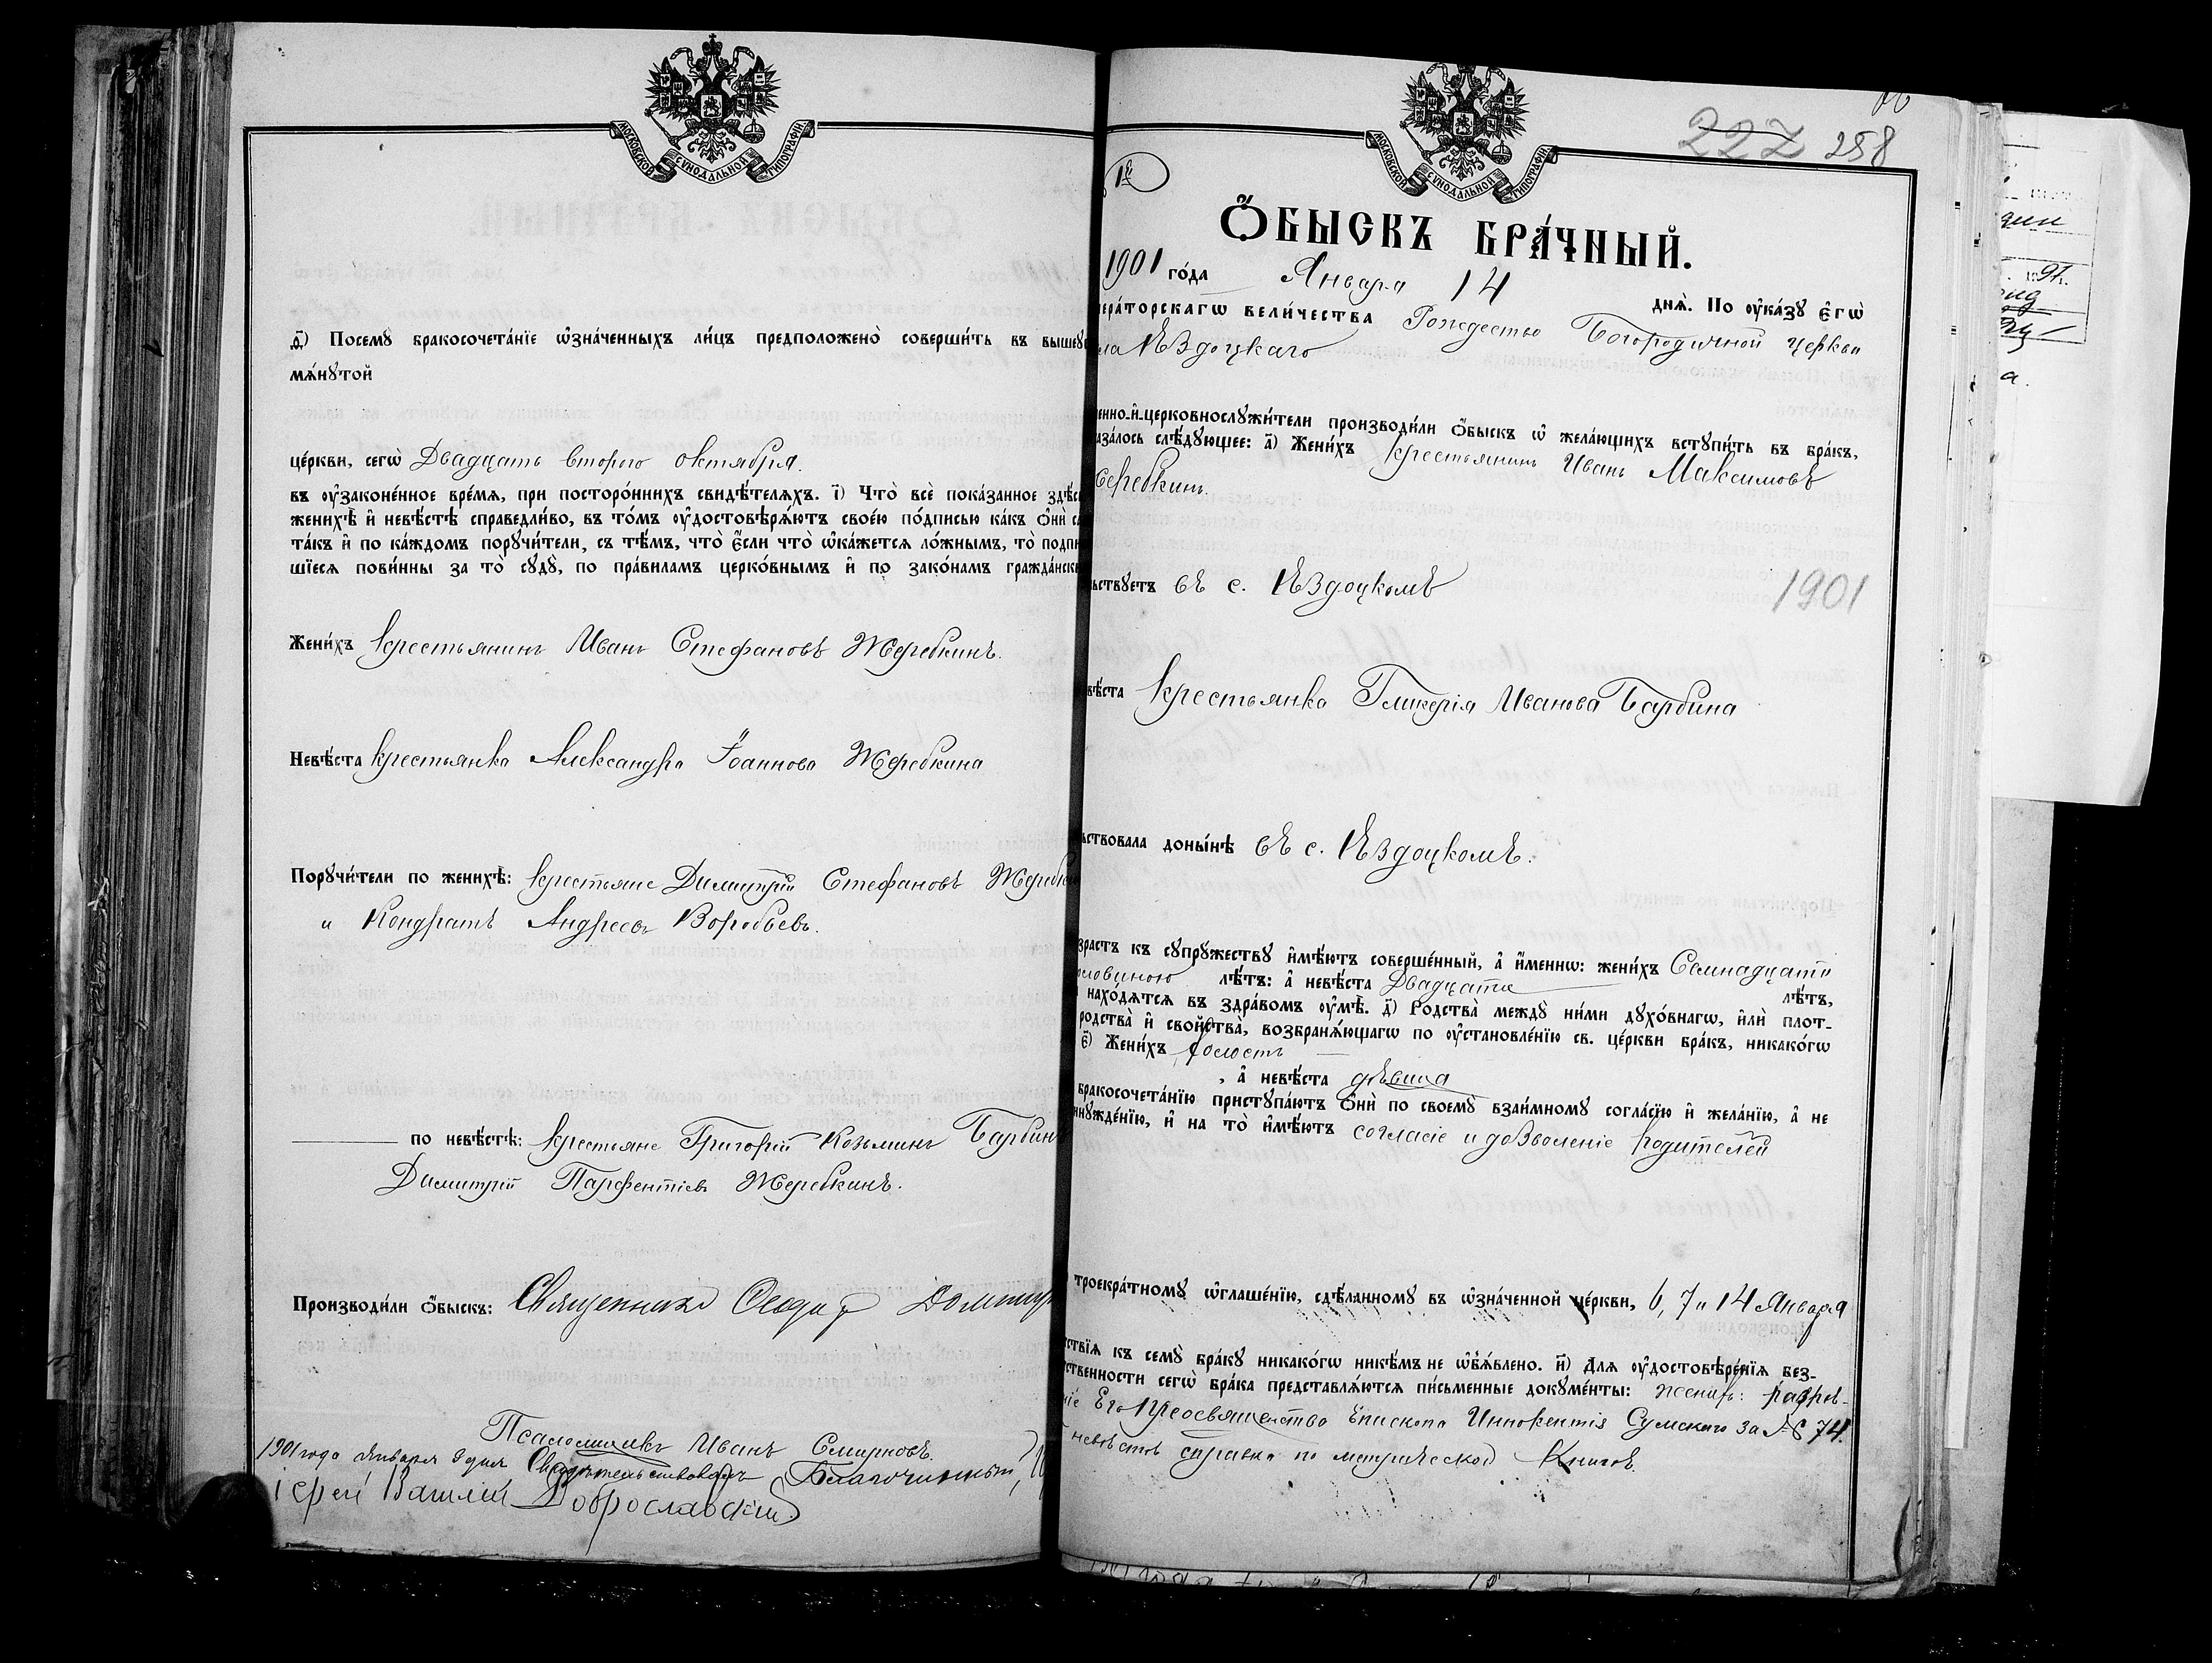 МОСКОВСКОЙ СУНОДАЛЬНОЙ ТИПОГРАФІИ
д҃) Посемꙋ бракосочета́нїе ѡ҆зна́ченныхъ ли́цъ предположено̀ соверши́ть въ вышеꙋ
мѧ́нꙋтой
це́ркви, сегѡ̀ Двадцать второго октября.
въ ᲂу҆законе́нное вре́мѧ, при посторо́ннихъ свидѣ́телѧхъ. і҃) Что̀ всѐ пока́занное здѣ́с
женихѣ̀ и҆ невѣ́стѣ справедли́во, въ то́мъ ᲂу҆достовѣрѧ́ютъ свое́ю по́дписью ка́къ ѻ҆нѝ са
та́къ и҆ по ка́ждомъ порꙋчи́тели, съ тѣ́мъ, что̀ є҆́сли что̀ ѡ҆ка́жетсѧ ло́жнымъ, то̀ подпи
шїесѧ пови́нны за то̀ сꙋдꙋ̀, по пра́виламъ церко́внымъ и҆ по зако́намъ гражда́нски
Жени́хъ крестьянинъ Иванъ Стефановъ Жеребкинъ.
Невѣ́ста крестьянка Александра Іоаннова Жеребкина
Порꙋчи́тели по женихѣ̀: крестьяне Димитрій Стефановъ Жеребки
и Кондратъ Андреевъ Воробьевъ.
по невѣ́стѣ: крестьяне Григорій Козьминъ Барбин
Димитрій Парфентіевъ Жеребкинъ.
Производи́ли ѻ҆́быскъ: Священникъ
Псаломщикъ Иванъ Смирновъ.
1901 года января 9 дня Свидѣтельствовалъ Благочинный,
іерей Василій Доброславскій
МОСКОВСКОЙ СУНОДАЛЬНОЙ ТИПОГРАФІИ
227 258
1й
Ѻ҆́БЫСКЪ БРА́ЧНЫЙ.
1901 го́да Января 14 днѧ̀. По ᲂу҆ка́зꙋ є҆гѡ̀
ера́торскагѡ вели́чества Рождество Богородичной церкви
ла Ѣздоцкаго
енно-и҆-церковнослꙋжи́тели производи́ли ѻ҆́быскъ ѡ҆ жела́ющихъ встꙋпи́ть въ бра́къ,
аза́лось слѣ́дꙋющее: а҃) Жени́хъ крестьянинъ Иванъ Максимовъ
еребкинъ.
ьствꙋетъ въ с. Ѣздоцкомъ
1901
вѣ́ста крестьянка Гликерія Иванова Барбина
ьствовала доны́нѣ въ с. Ѣздоцкомъ.
зрастъ къ сꙋпрꙋ́жествꙋ и҆мѣ́ютъ соверше́нный, а҆ и҆́меннѡ: жени́хъ Семнадцати
оловиною лѣ́тъ: а҆ невѣ́ста Двадцати лѣ́тъ,
нахо́дѧтсѧ въ здра́вомъ ᲂу҆мѣ̀. д҃) Родства̀ междꙋ̀ ни́ми дꙋхо́внагѡ, и҆лѝ плот-
родства̀ и҆ свойства̀, возбранѧ́ющагѡ по ᲂу҆становле́нїю св. це́ркви бра́къ, никако́гѡ
є҃) Жени́хъ холостъ
, а҆ невѣ́ста дѣвица
бракосочета́нїю пристꙋпа́ютъ ѻ҆нѝ по своемꙋ̀ взаи́мномꙋ согла́сїю и҆ жела́нїю, а҆ не
инꙋжде́нїю, и҆ на то̀ и҆мѣ́ютъ согласіе и дозволеніе родителей
троекра́тномꙋ ѡ҆глаше́нїю, сдѣ́ланномꙋ въ ѡ҆зна́ченной це́ркви, 6, 7 и 14 Января
ствїѧ къ семꙋ̀ бра́кꙋ никако́гѡ нике́мъ не ѡ҆б̾ѧ́влено. и҃) Длѧ ᲂу҆достовѣре́нїѧ без-
ственности сегѡ̀ бра́ка представлѧ́ютсѧ пи́сьменные докꙋме́нты: жениха: разрѣ-
ніе Его Преосвященства Епископа Иннокентія Сумского за № 74.
невѣстѣ справка по метрической книгѣ.